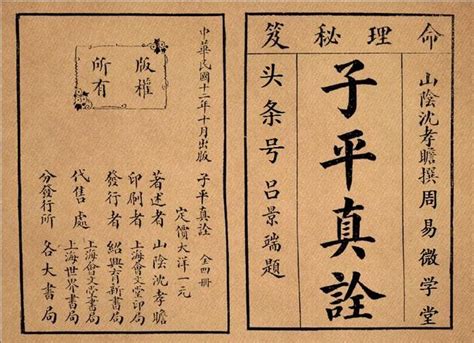 命理秘笈
山陰沈孝瞻撰周易微学堂
子平真詮
头条号吕景端題
中華民國十二年十月出版
版權
所有
子平真詮 全四冊
定價大洋一元
著述者 山陰沈孝瞻
印刷者 上海會文堂印局
發行者 紹興育新書局
代售處 上海會文堂書局
上海世界書局
分發行所 各大書局